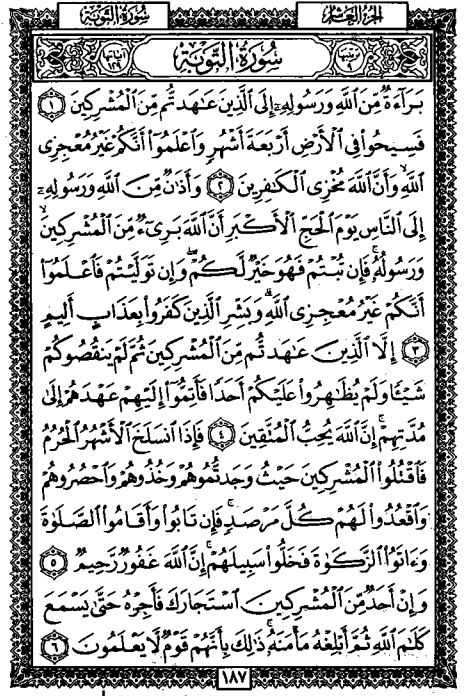 سُورَةُ التَّوْبَةِ
الجُزْءُ العَاشِرُ
سُورَةُ التَّوْبَةِ
بَرَآءَةٌ مِّنَ ٱللَّهِ وَرَسُولِهِۦٓ إِلَى ٱلَّذِينَ عَٰهَدتُّم مِّنَ ٱلْمُشْرِكِينَ ١
فَسِيحُوا۟ فِى ٱلْأَرْضِ أَرْبَعَةَ أَشْهُرٍ وَٱعْلَمُوٓا۟ أَنَّكُمْ غَيْرُ مُعْجِزِى
ٱللَّهِ وَأَنَّ ٱللَّهَ مُخْزِى ٱلْكَٰفِرِينَ ٢ وَأَذَٰنٌ مِّنَ ٱللَّهِ وَرَسُولِهِۦٓ
إِلَى ٱلنَّاسِ يَوْمَ ٱلْحَجِّ ٱلْأَكْبَرِ أَنَّ ٱللَّهَ بَرِىٓءٌ مِّنَ ٱلْمُشْرِكِينَ ۙ
وَرَسُولُهُۥ ۚ فَإِن تُبْتُمْ فَهُوَ خَيْرٌ لَّكُمْ ۖ وَإِن تَوَلَّيْتُمْ فَٱعْلَمُوٓا۟
أَنَّكُمْ غَيْرُ مُعْجِزِى ٱللَّهِ ۗ وَبَشِّرِ ٱلَّذِينَ كَفَرُوا۟ بِعَذَابٍ أَلِيمٍ
٣ إِلَّا ٱلَّذِينَ عَٰهَدتُّم مِّنَ ٱلْمُشْرِكِينَ ثُمَّ لَمْ يَنقُصُوكُمْ
شَيْـًٔا وَلَمْ يُظَٰهِرُوا۟ عَلَيْكُمْ أَحَدًا فَأَتِمُّوٓا۟ إِلَيْهِمْ عَهْدَهُمْ إِلَىٰ
مُدَّتِهِمْ ۚ إِنَّ ٱللَّهَ يُحِبُّ ٱلْمُتَّقِينَ ٤ فَإِذَا ٱنسَلَخَ ٱلْأَشْهُرُ ٱلْحُرُمُ
فَٱقْتُلُوا۟ ٱلْمُشْرِكِينَ حَيْثُ وَجَدتُّمُوهُمْ وَخُذُوهُمْ وَٱحْصُرُوهُمْ
وَٱقْعُدُوا۟ لَهُمْ كُلَّ مَرْصَدٍ ۚ فَإِن تَابُوا۟ وَأَقَامُوا۟ ٱلصَّلَوٰةَ
وَءَاتَوُا۟ ٱلزَّكَوٰةَ فَخَلُّوا۟ سَبِيلَهُمْ ۚ إِنَّ ٱللَّهَ غَفُورٌ رَّحِيمٌ ٥
وَإِنْ أَحَدٌ مِّنَ ٱلْمُشْرِكِينَ ٱسْتَجَارَكَ فَأَجِرْهُ حَتَّىٰ يَسْمَعَ
كَلَٰمَ ٱللَّهِ ثُمَّ أَبْلِغْهُ مَأْمَنَهُۥ ۚ ذَٰلِكَ بِأَنَّهُمْ قَوْمٌ لَّا يَعْلَمُونَ ٦
١٨٧